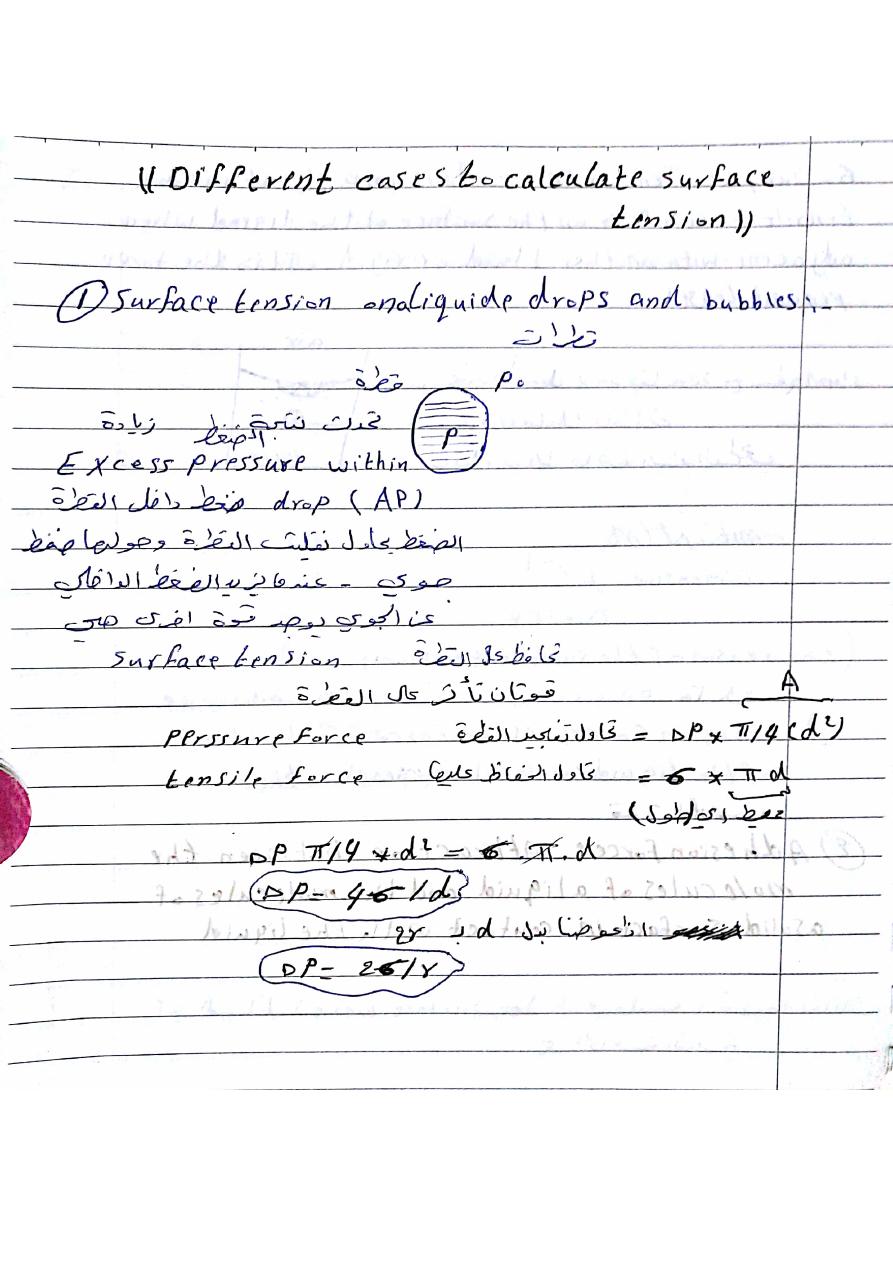 (( Different cases to calculate surface
tension ))
① Surface tension onaliquide drops and bubbles:-
قطرات
قطرة P₀
تحدث نتيجة الضغط زيادة
P
Excess pressure within
drop (ΔP) ضغط داخل القطرة
الضغط يحاول تفليت القطرة وحولها ضغط
جوي - عندما يزيد الضغط الداخلي
عن الجوي يوجد قوة اخرى هي
surface tension تحافظ على القطرة
قوتان تأثر على القطرة
A
Perssure force تحاول تفجير القطرة = ΔP * π/4 (d²)
tensile force تحاول الحفاظ عليها = σ * π d
محيط اي (طول)
ΔP π/4 * d² = σ . π . d
ΔP = 4σ/d
اذا عوضنا بدل d بـ 2r
ΔP = 2σ/r